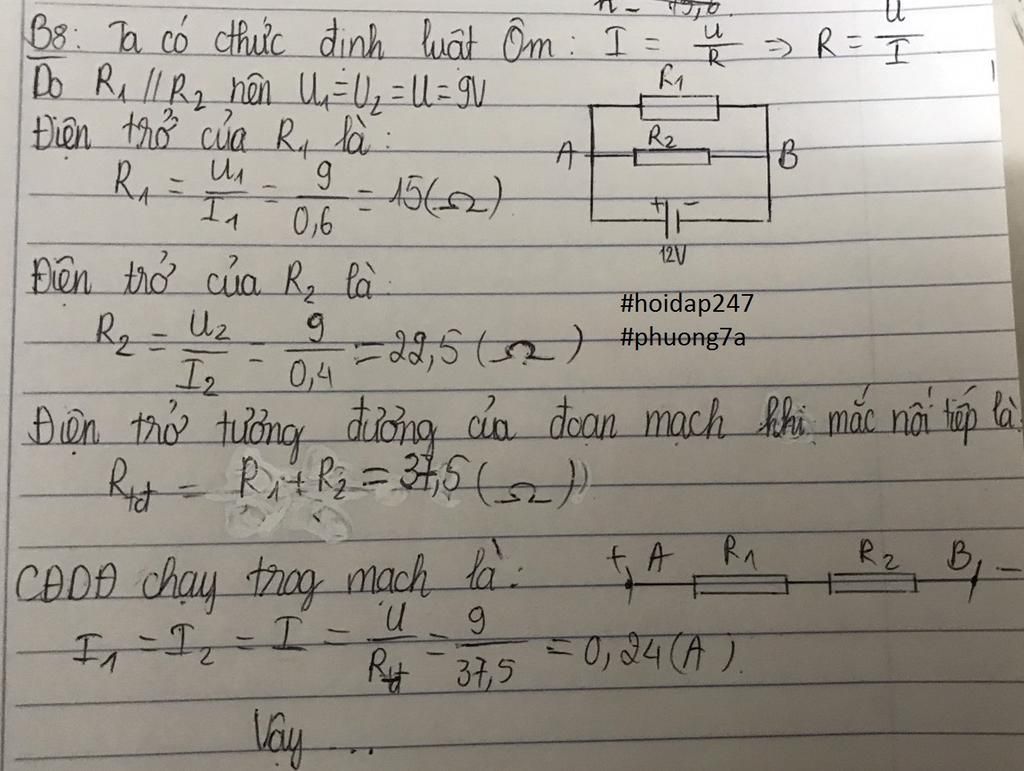 B8: Ta có cthức định luật Ôm: I = U/R => R = U/I
Do R1 // R2 nên U1 = U2 = U = 9V
Điện trở của R1 là:
R1 = U1/I1 = 9/0,6 = 15(Ω)
R1
A R2 B
+ -
12V
Điện trở của R2 là:
R2 = U2/I2 = 9/0,4 = 22,5 (Ω)
#hoidap247
#phuong7a
Điện trở tương đương của đoạn mạch khi mắc nối tiếp là
Rtđ = R1 + R2 = 37,5 (Ω)
CĐDĐ chạy trog mạch là:
+ A R1 R2 B -
I1 = I2 = I = U/Rtđ = 9/37,5 = 0,24(A).
Vậy ...